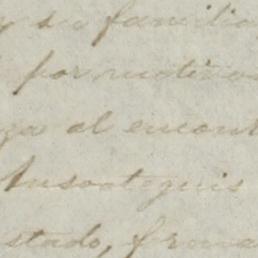 y su familia
por motivos
za al encont
Ansoateguis
stado,